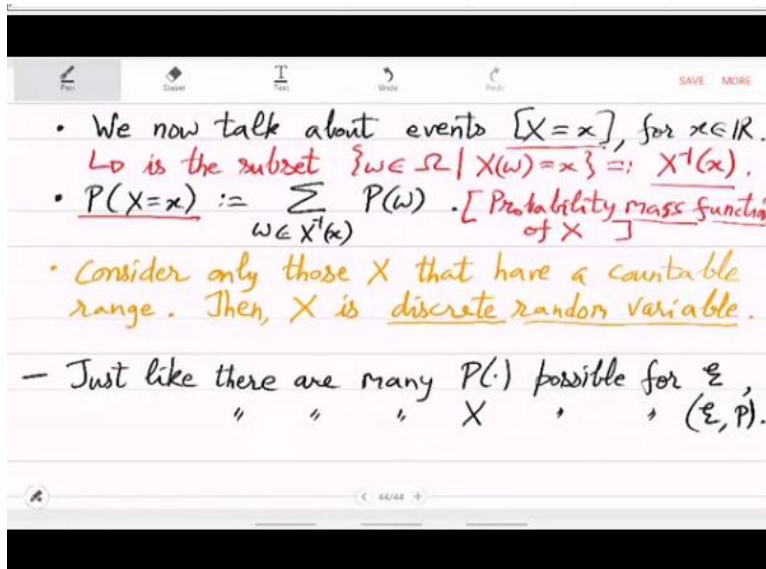 Pen Eraser Text Undo Redo SAVE MORE
• We now talk about events [X=x], for x∈ℝ.
↳ is the subset {ω∈Ω | X(ω)=x} =: X⁻¹(x).
• P(X=x) := ∑ P(ω) . [Probability mass function
ω∈X⁻¹(x) of X ]
• Consider only those X that have a countable
range. Then, X is discrete random variable.
— Just like there are many P(·) possible for ℰ,
〃 〃 〃 X 〃 〃 (ℰ, P).
< 44/44 +